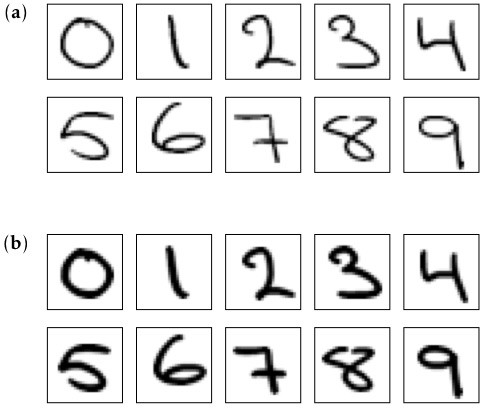 (a)
0 1 2 3 4
5 6 7 8 9
(b)
0 1 2 3 4
5 6 7 8 9